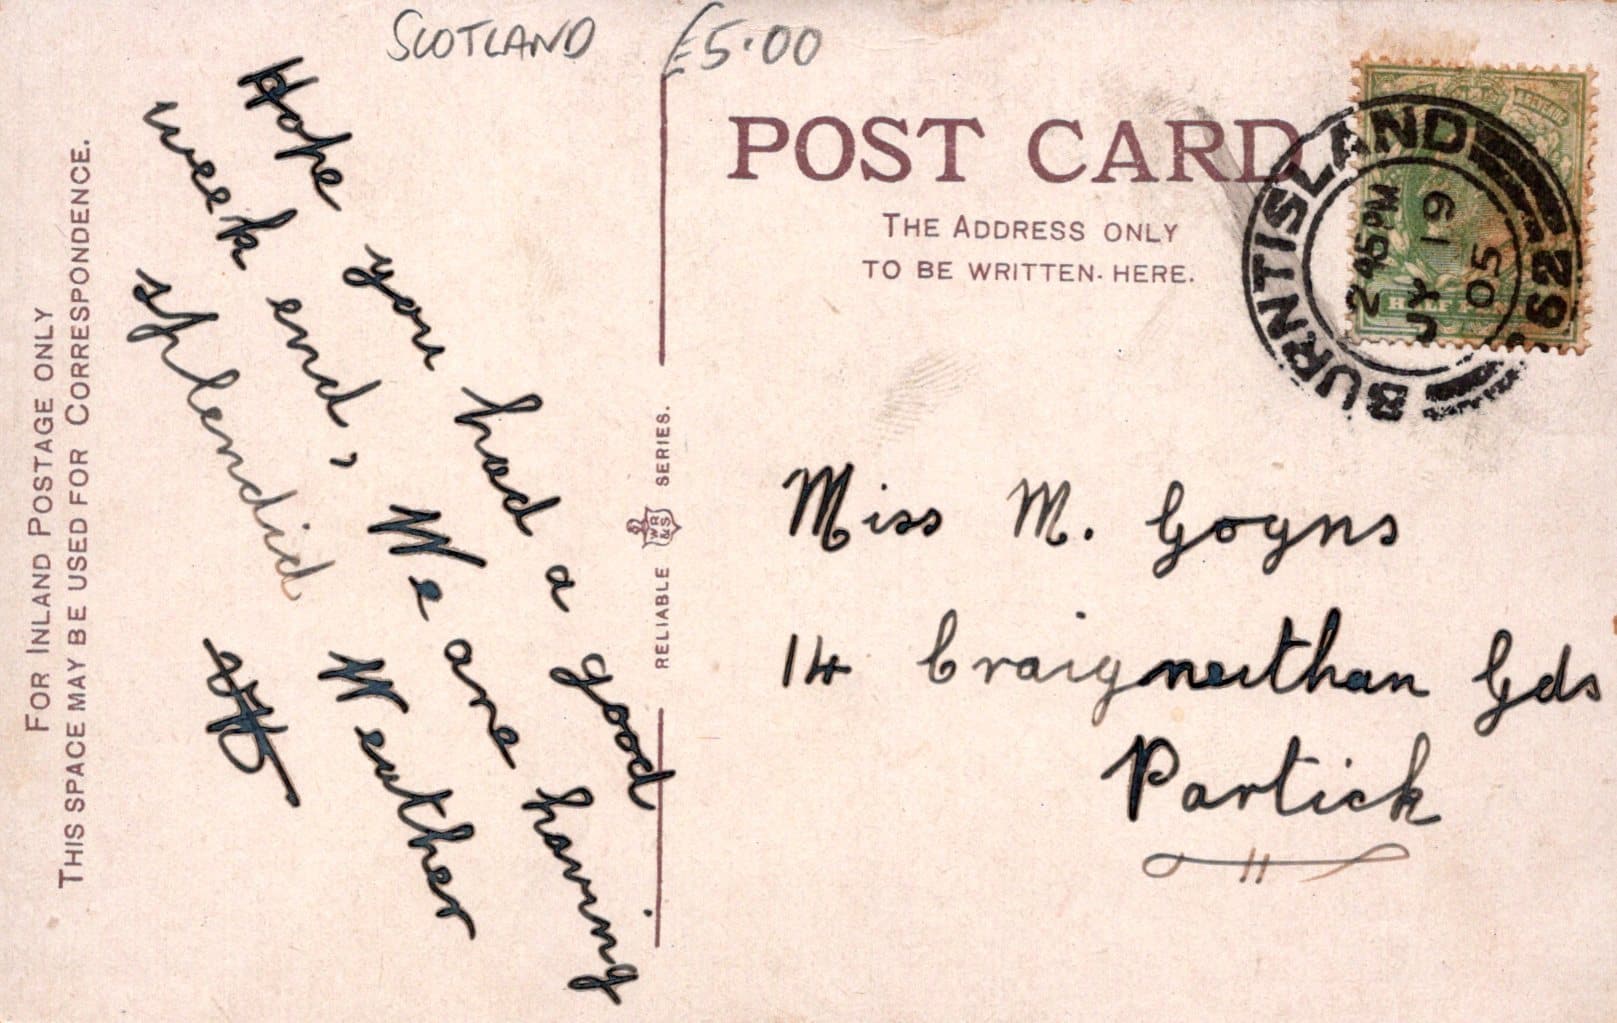 SCOTLAND £5.00
FOR INLAND POSTAGE ONLY
THIS SPACE MAY BE USED FOR CORRESPONDENCE.
Hope you had a good
week end, We are having
splendid Weather
POST CARD
THE ADDRESS ONLY
TO BE WRITTEN HERE.
RELIABLE WR&S SERIES.
BURNTISLAND
2 45PM
JY 19
05
62
HALF
Miss M. Goyns
14 Craigneithan Gds
Partick